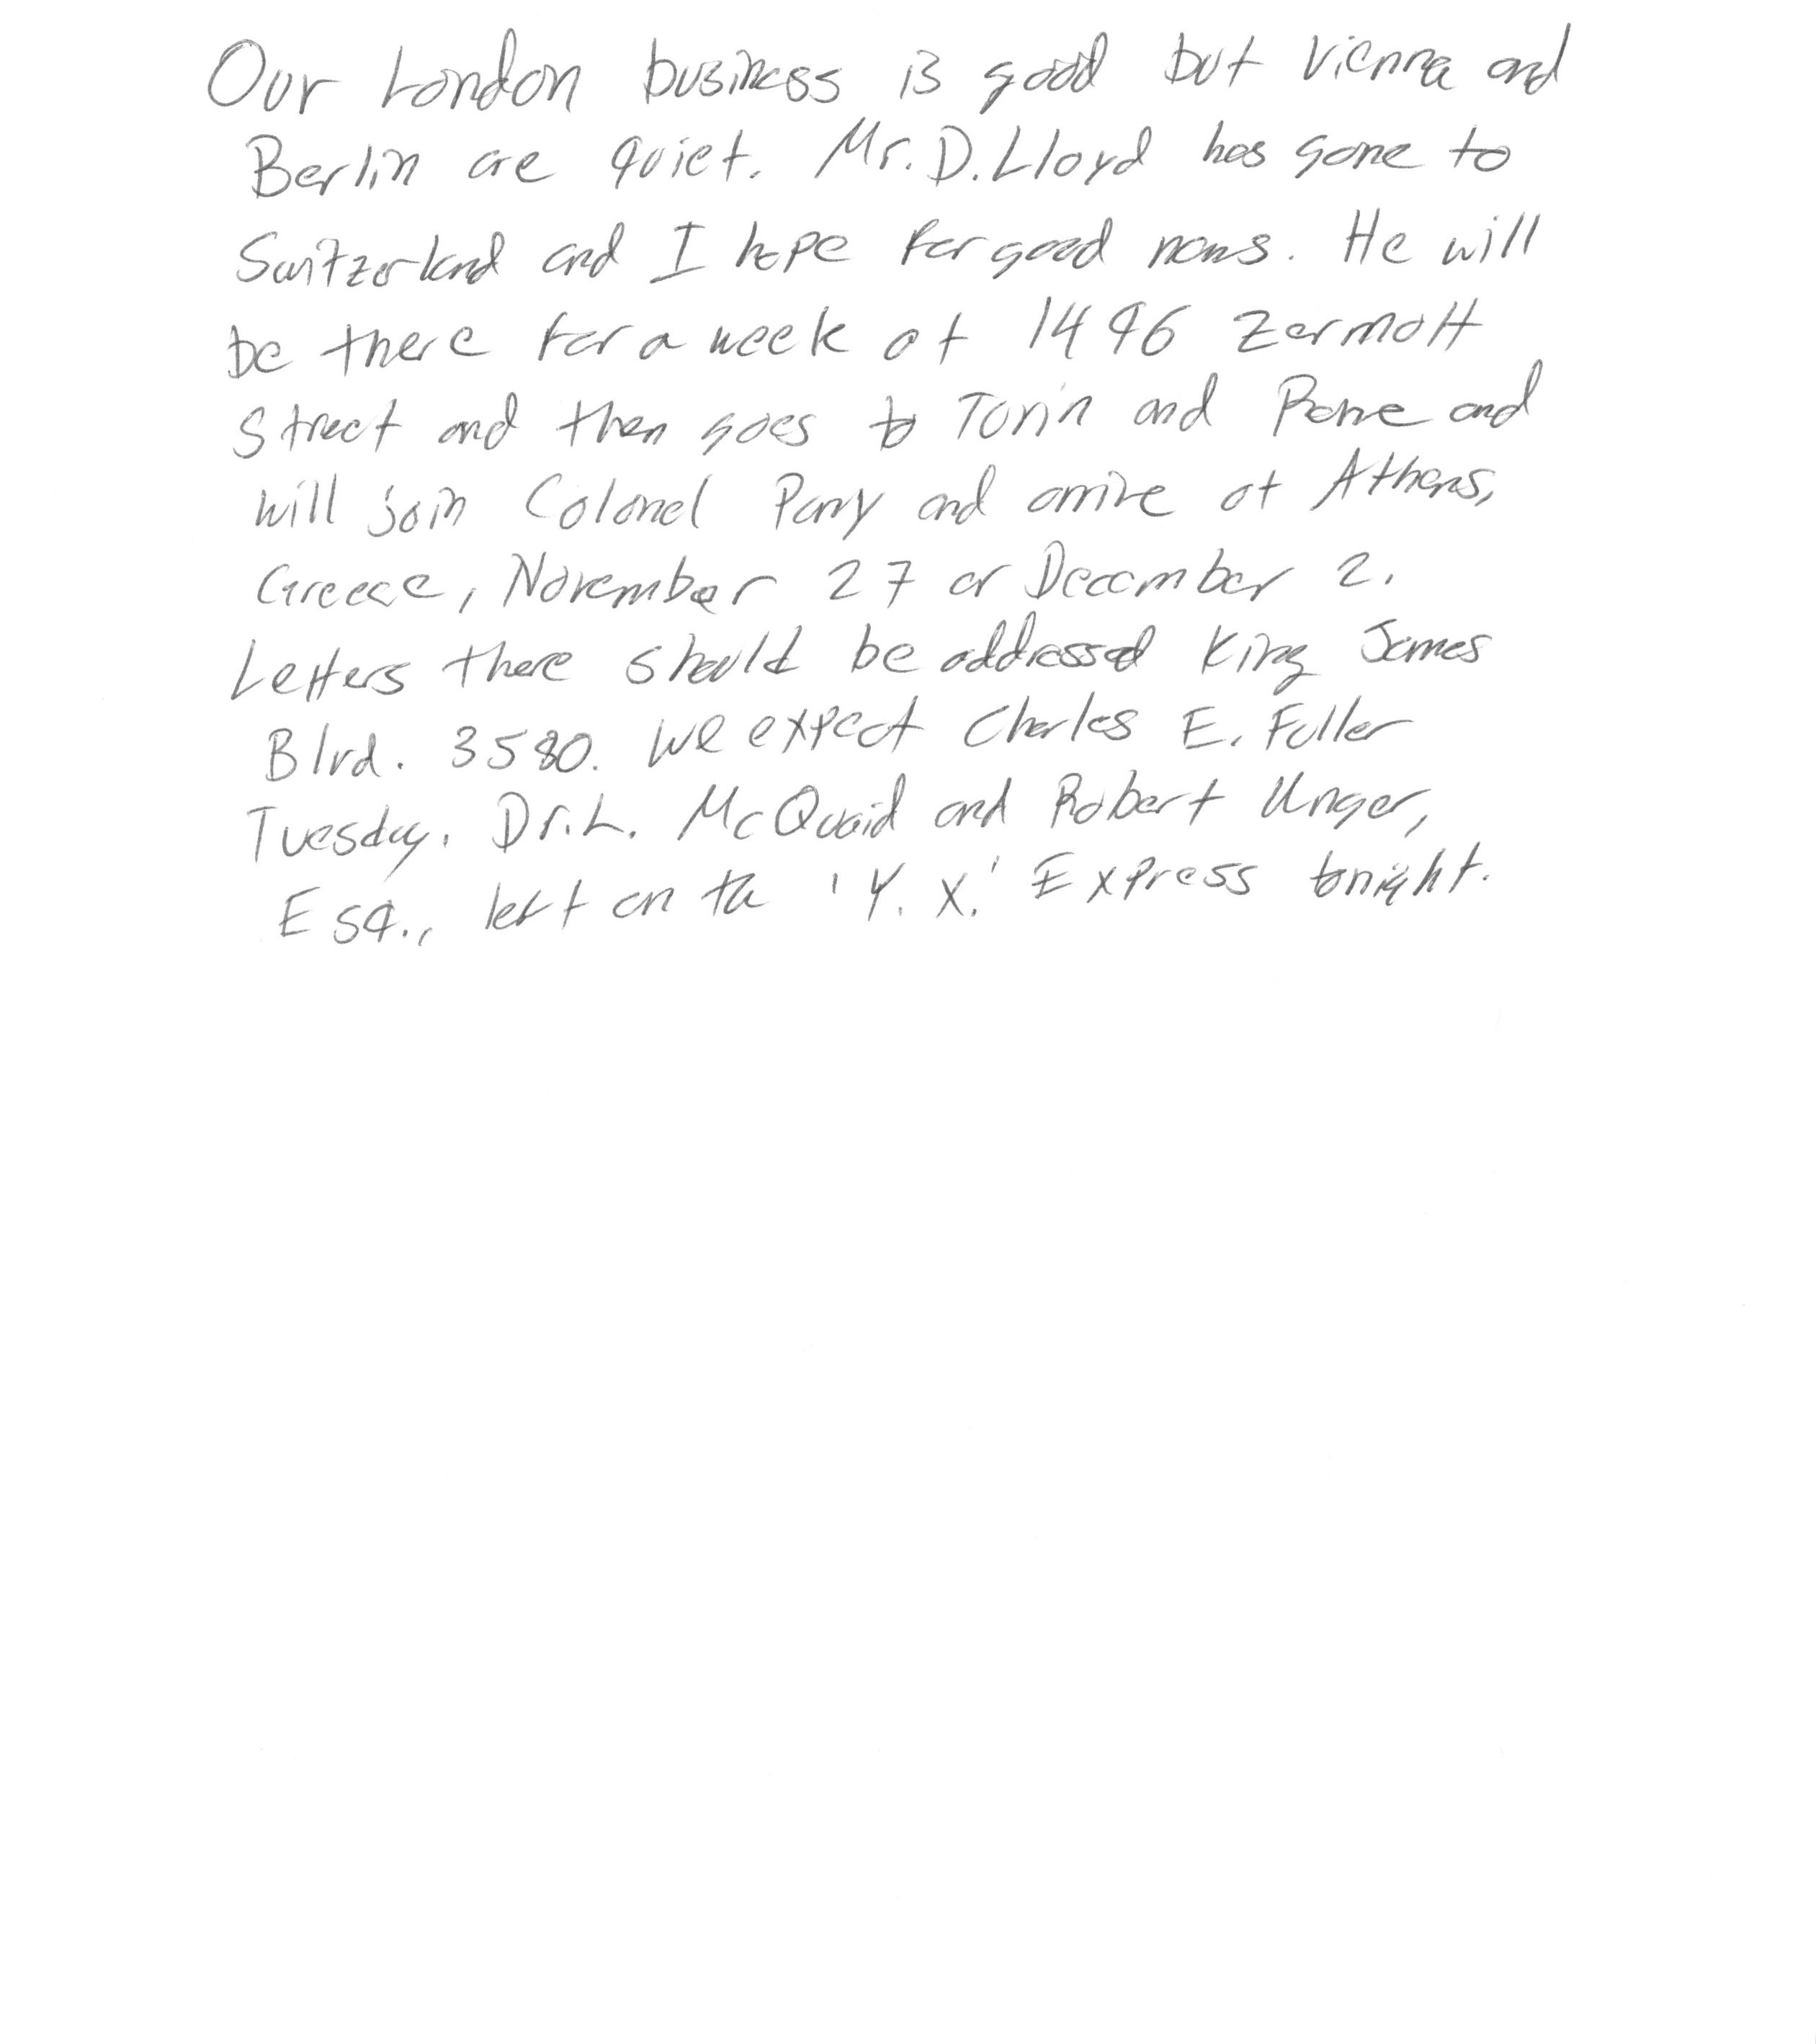 Our London business is good but Vienna and
Berlin are quiet. Mr. D. Lloyd has gone to
Switzerland and I hope for good news. He will
be there for a week at 1496 Zermott
Street and then goes to Turin and Rome and
will join Colonel Parry and arrive at Athens,
Greece, November 27 or December 2.
Letters there should be addressed King James
Blvd. 3580. We expect Charles E. Fuller
Tuesday. Dr. L. McQuaid and Robert Unger,
Esq., left on the 'Y. X.' Express tonight.